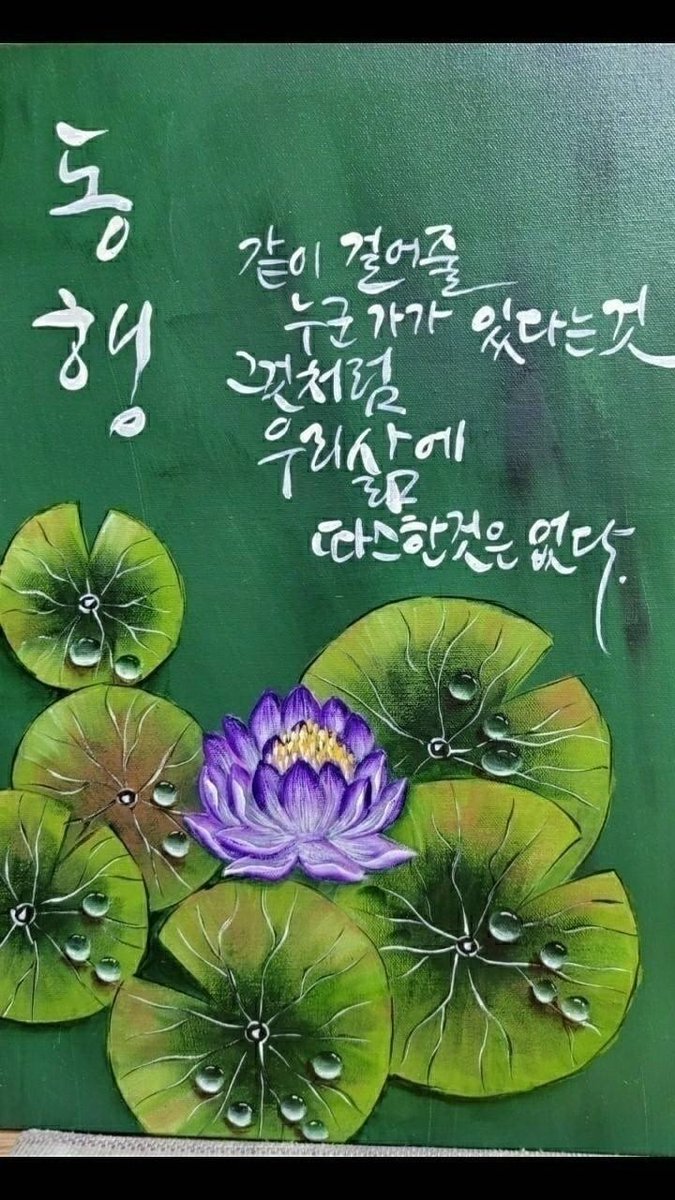 동행
같이 걸어줄
누군가가 있다는것
그것처럼
우리삶에
따스한것은 없다.